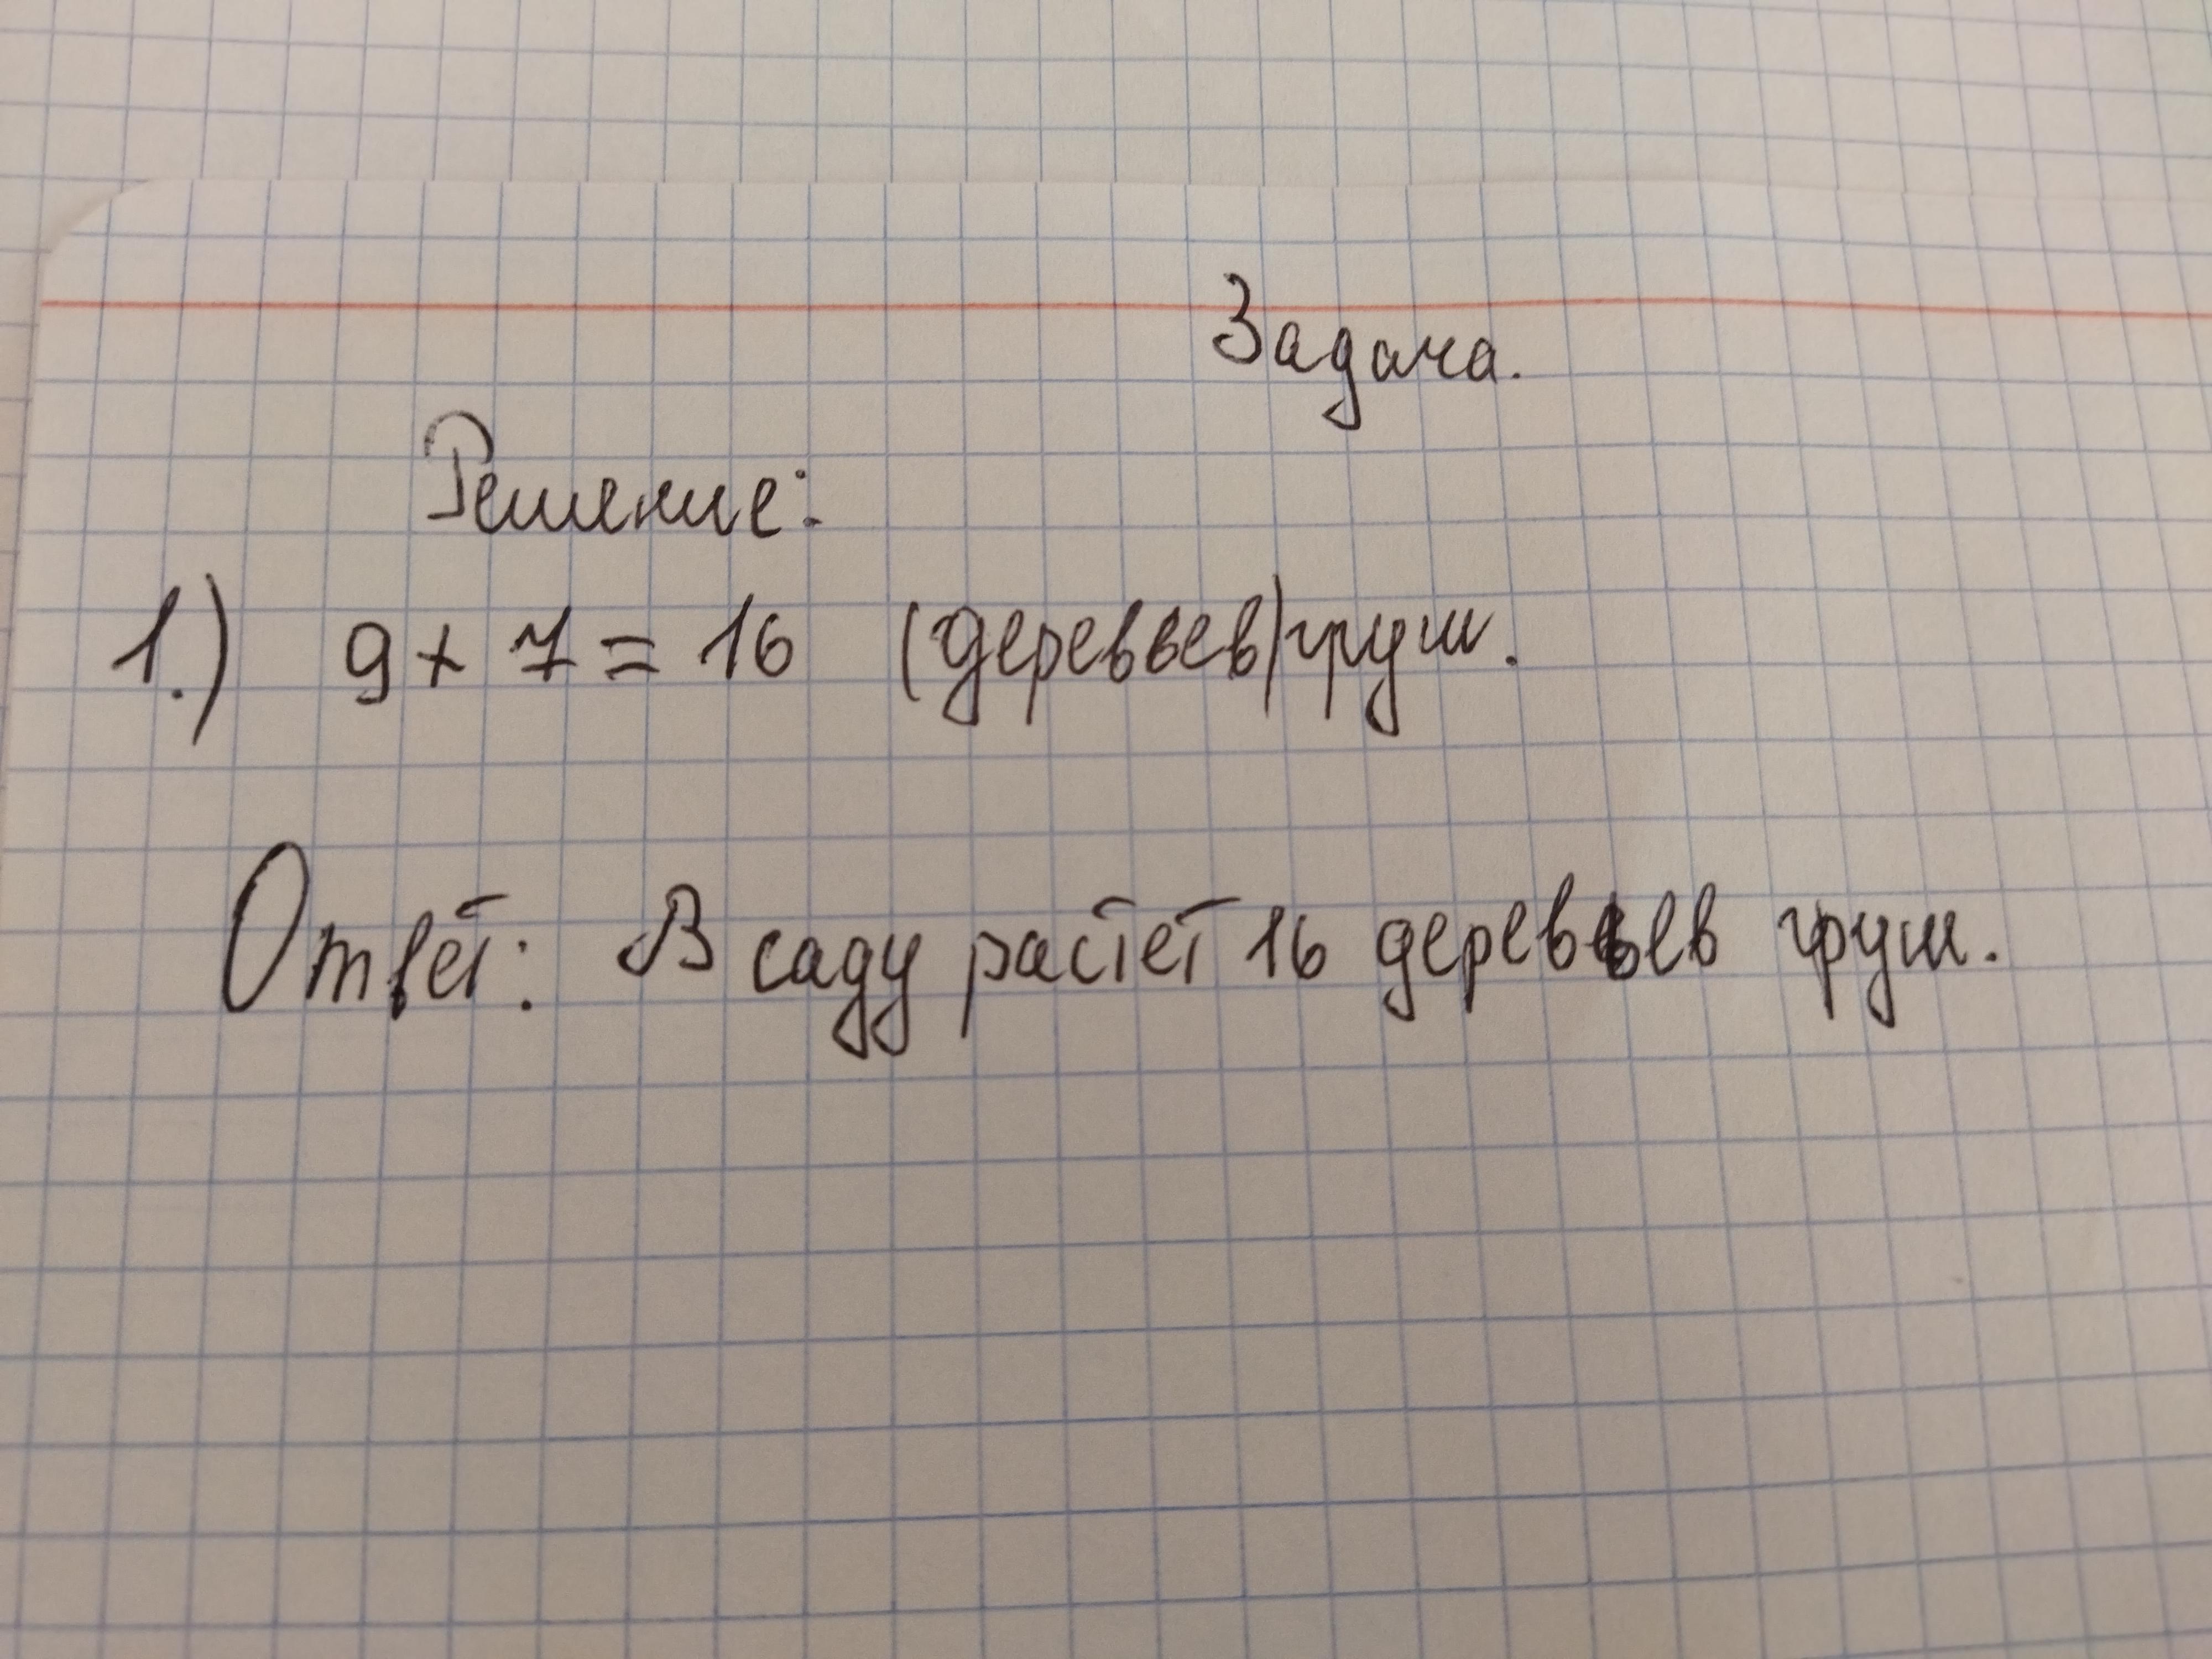 Задача.
Решение:
1.) 9 + 7 = 16 (деревьев) груш.
Ответ: В саду растет 16 деревьев груш.